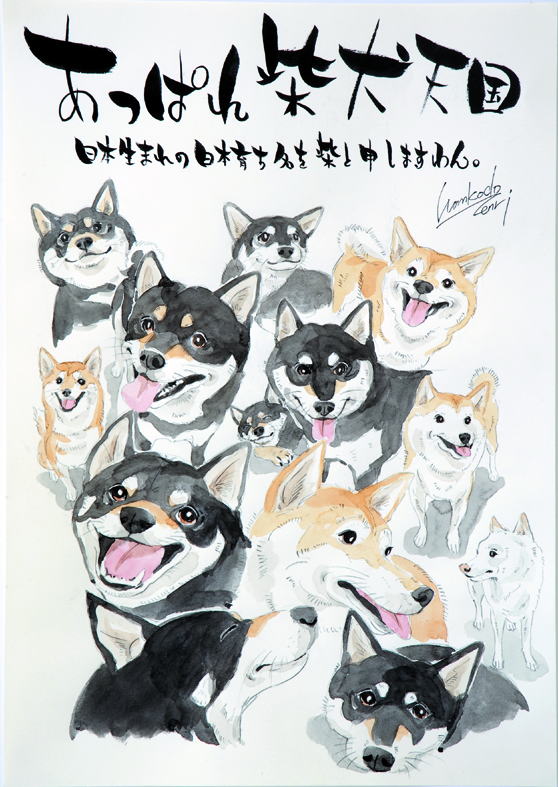 あっぱれ柴犬天国
日本生まれの日本育ち名を柴と申しますわん。